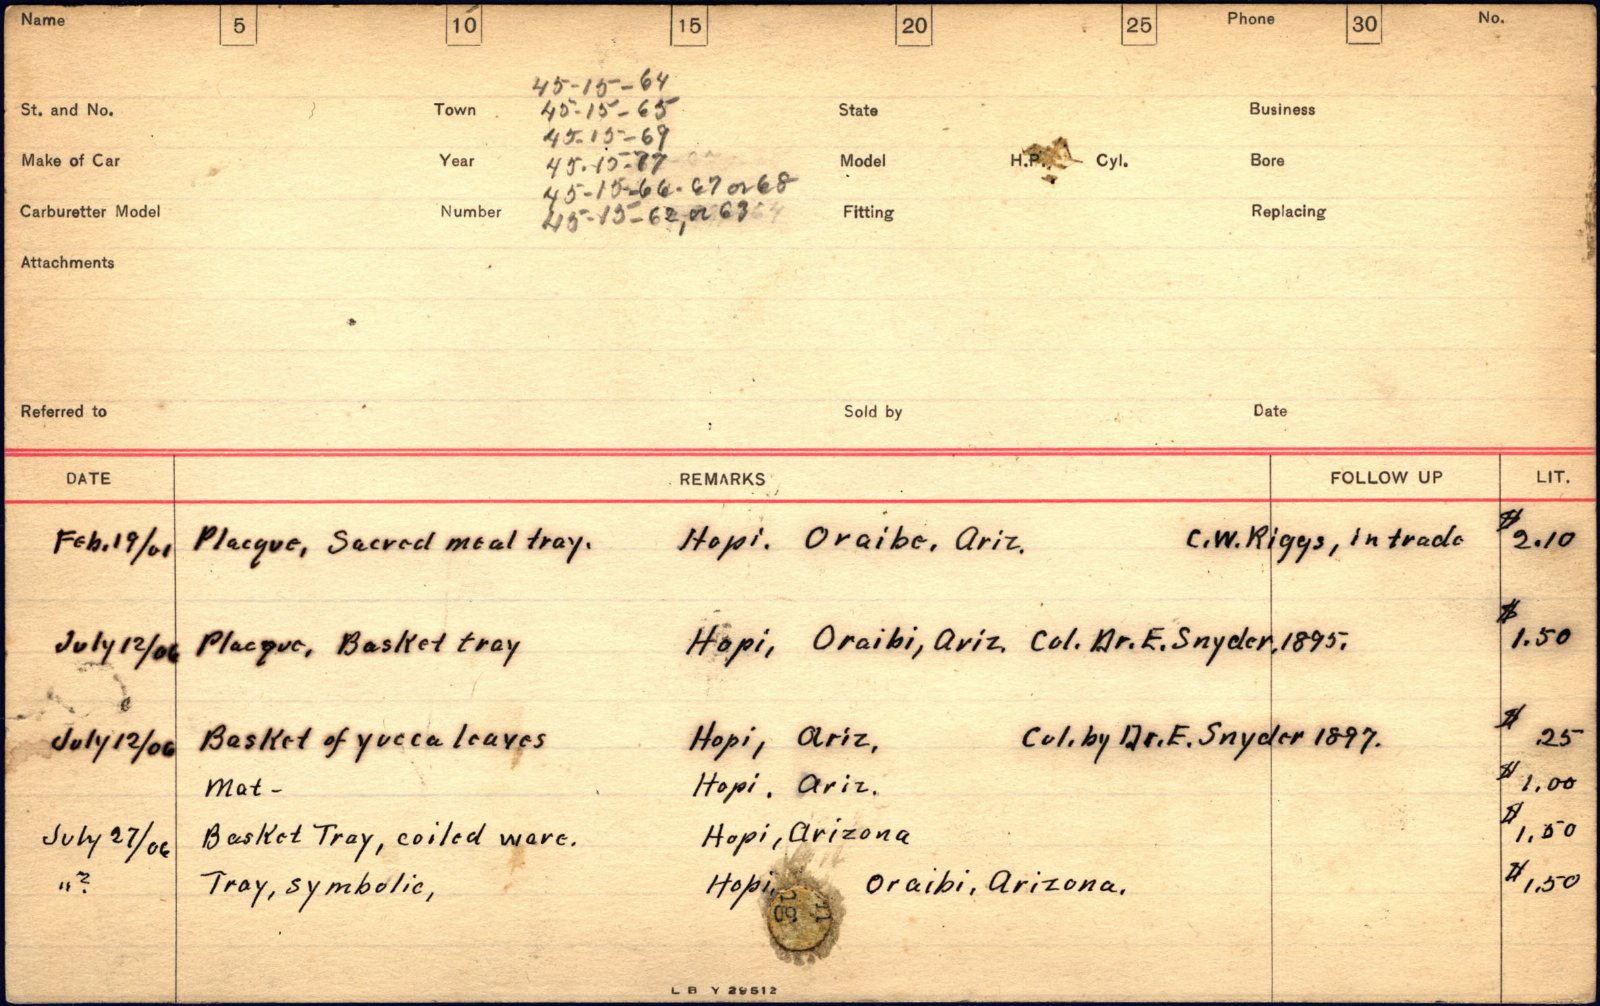 Name 5 10 15 20 25 Phone 30 No.
45-15-64
St. and No. Town 45-15-65 State Business
45-15-69
Make of Car Year 45-15-77 Model H.P. Cyl. Bore
45-15-66-67 or 68
Carburetter Model Number 45-15-62, or 63 Fitting Replacing
Attachments
Referred to Sold by Date
DATE REMARKS FOLLOW UP LIT.
Feb. 19/01 Placque, Sacred meal tray. Hopi. Oraibe, Ariz. C.W. Riggs, in trade $2.10
July 12/06 Placque, Basket tray Hopi, Oraibi, Ariz. Col. Dr. E. Snyder, 1895. $1.50
July 12/06 Basket of yucca leaves Hopi, Ariz, Col. by Dr. E. Snyder 1897. $.25
Mat - Hopi. Ariz. $1.00
July 27/06 Basket Tray, coiled ware. Hopi, Arizona $1.50
" ? Tray, symbolic, Hopi. Oraibi, Arizona. $1.50
L B Y 29512